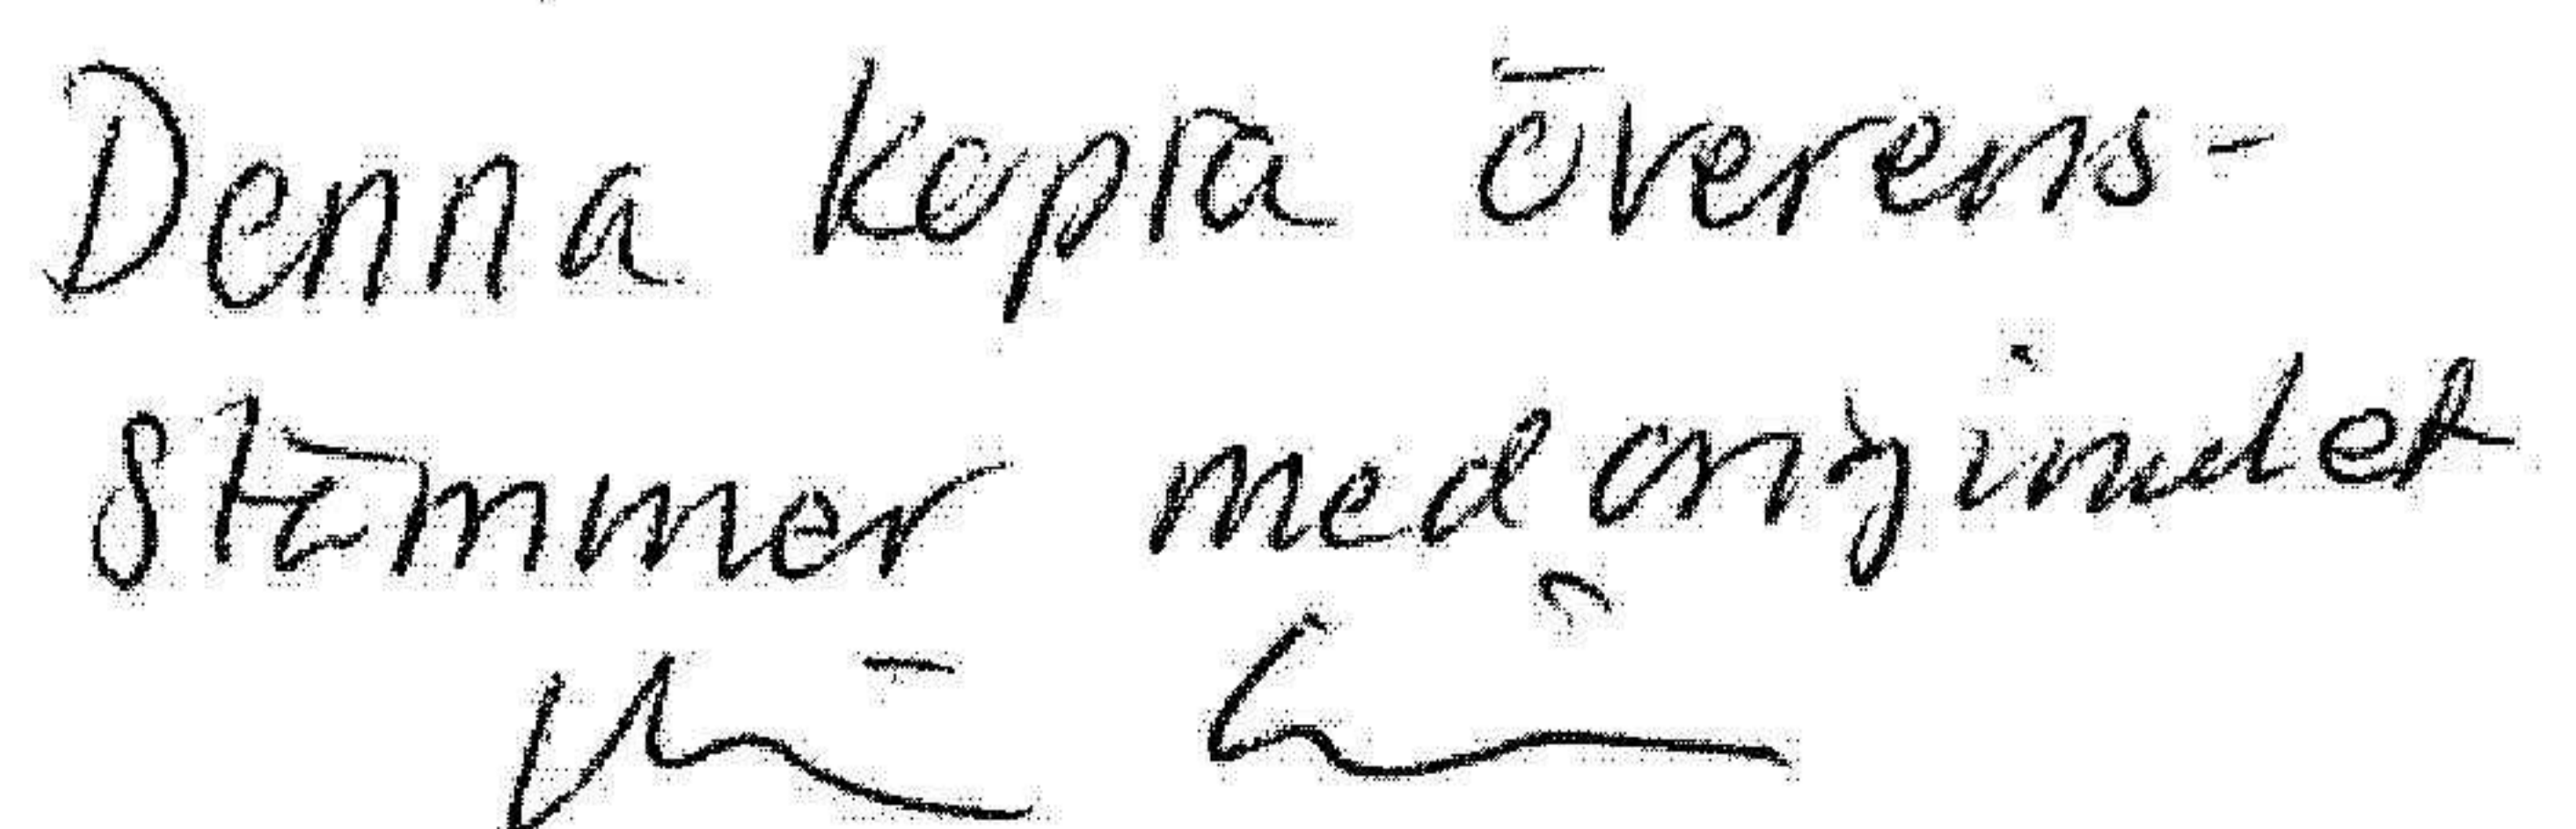 Denna kopia överens-
stämmer med originalet